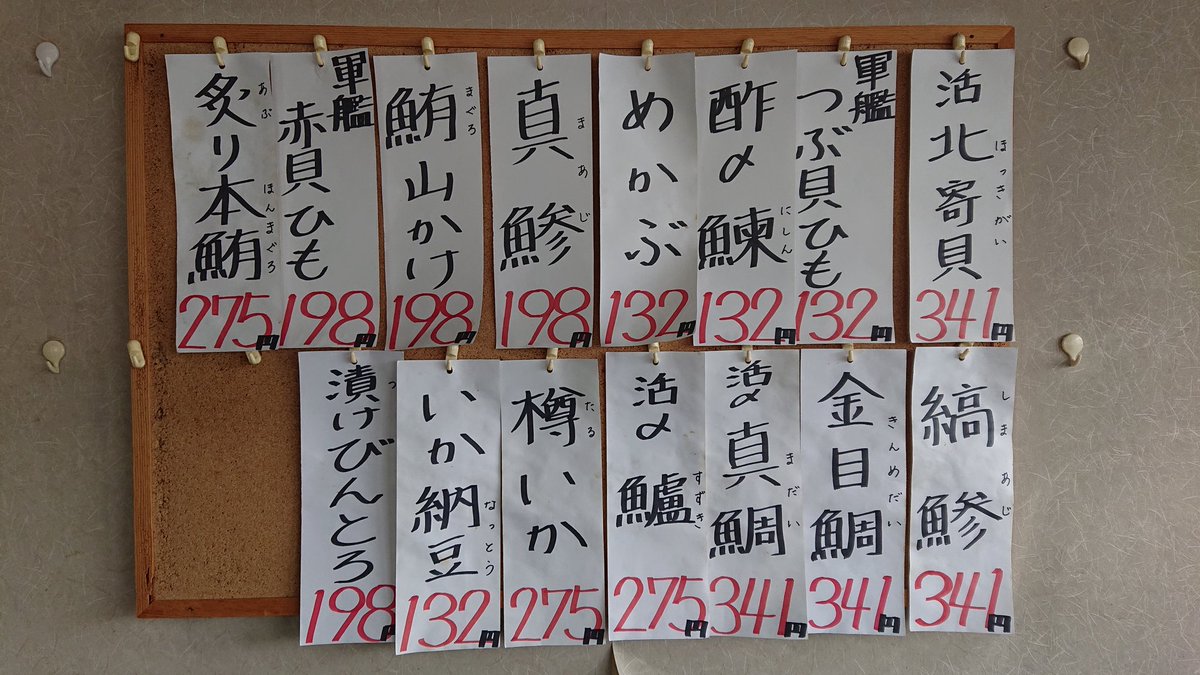 活北寄貝
ほっきがい
341円
軍艦
つぶ貝ひも
132円
酢〆鰊
にしん
132円
めかぶ
132円
真鯵
まあじ
198円
鮪山かけ
まぐろ
198円
軍艦
赤貝ひも
198円
炙り本鮪
あぶ
ほんまぐろ
275円
縞鯵
しまあじ
341円
金目鯛
きんめだい
341円
活〆真鯛
まだい
341円
活〆鱸
すずき
275円
樽いか
たる
275円
いか納豆
なっとう
132円
漬けびんとろ
つ
198円